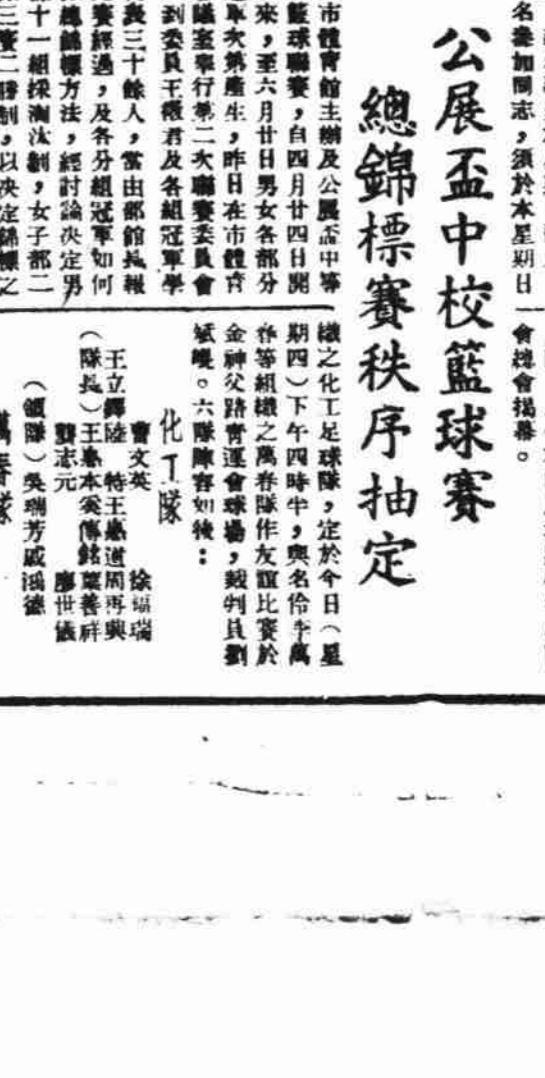 名參加同志，須於本星期日
會總會揭幕。
公展盃中校籃球賽
總錦標賽秩序抽定
市體育館主辦及公展盃中等
籃球聯賽，自四月廿四日開
來，至六月廿日男女各部分
軍次第產生，昨日在市體育
議室舉行第二次聯賽委員會
到委員王 君及各組冠軍學
表三十餘人，當由邵館長報
賽經過，及各分組冠軍如何
總錦標方法，經討論決定男
十一組採淘汰制，女子部二
三賽二勝制，以決定錦標之
織之化工足球隊，定於今日（星
期四）下午四時半，與名伶李萬
春等組織之萬春隊作友誼比賽於
金神父路青運會球場，裁判員劉
。六隊陣容如後：
化工隊
曹文英 徐福瑞
王立 陸 特王 道周再興
（隊長）王 本奚傳銘葉善祥
龔志元 廖世儀
（領隊）吳瑞芳戚鴻德
萬春隊